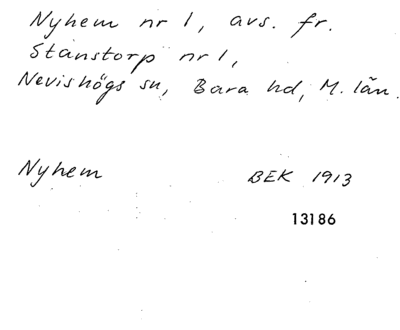 Nyhem nr 1, avs. fr.
Stanstorp nr 1,
Nevishögs sn, Bara hd, M. län.
Nyhem
BEK 1913
13186